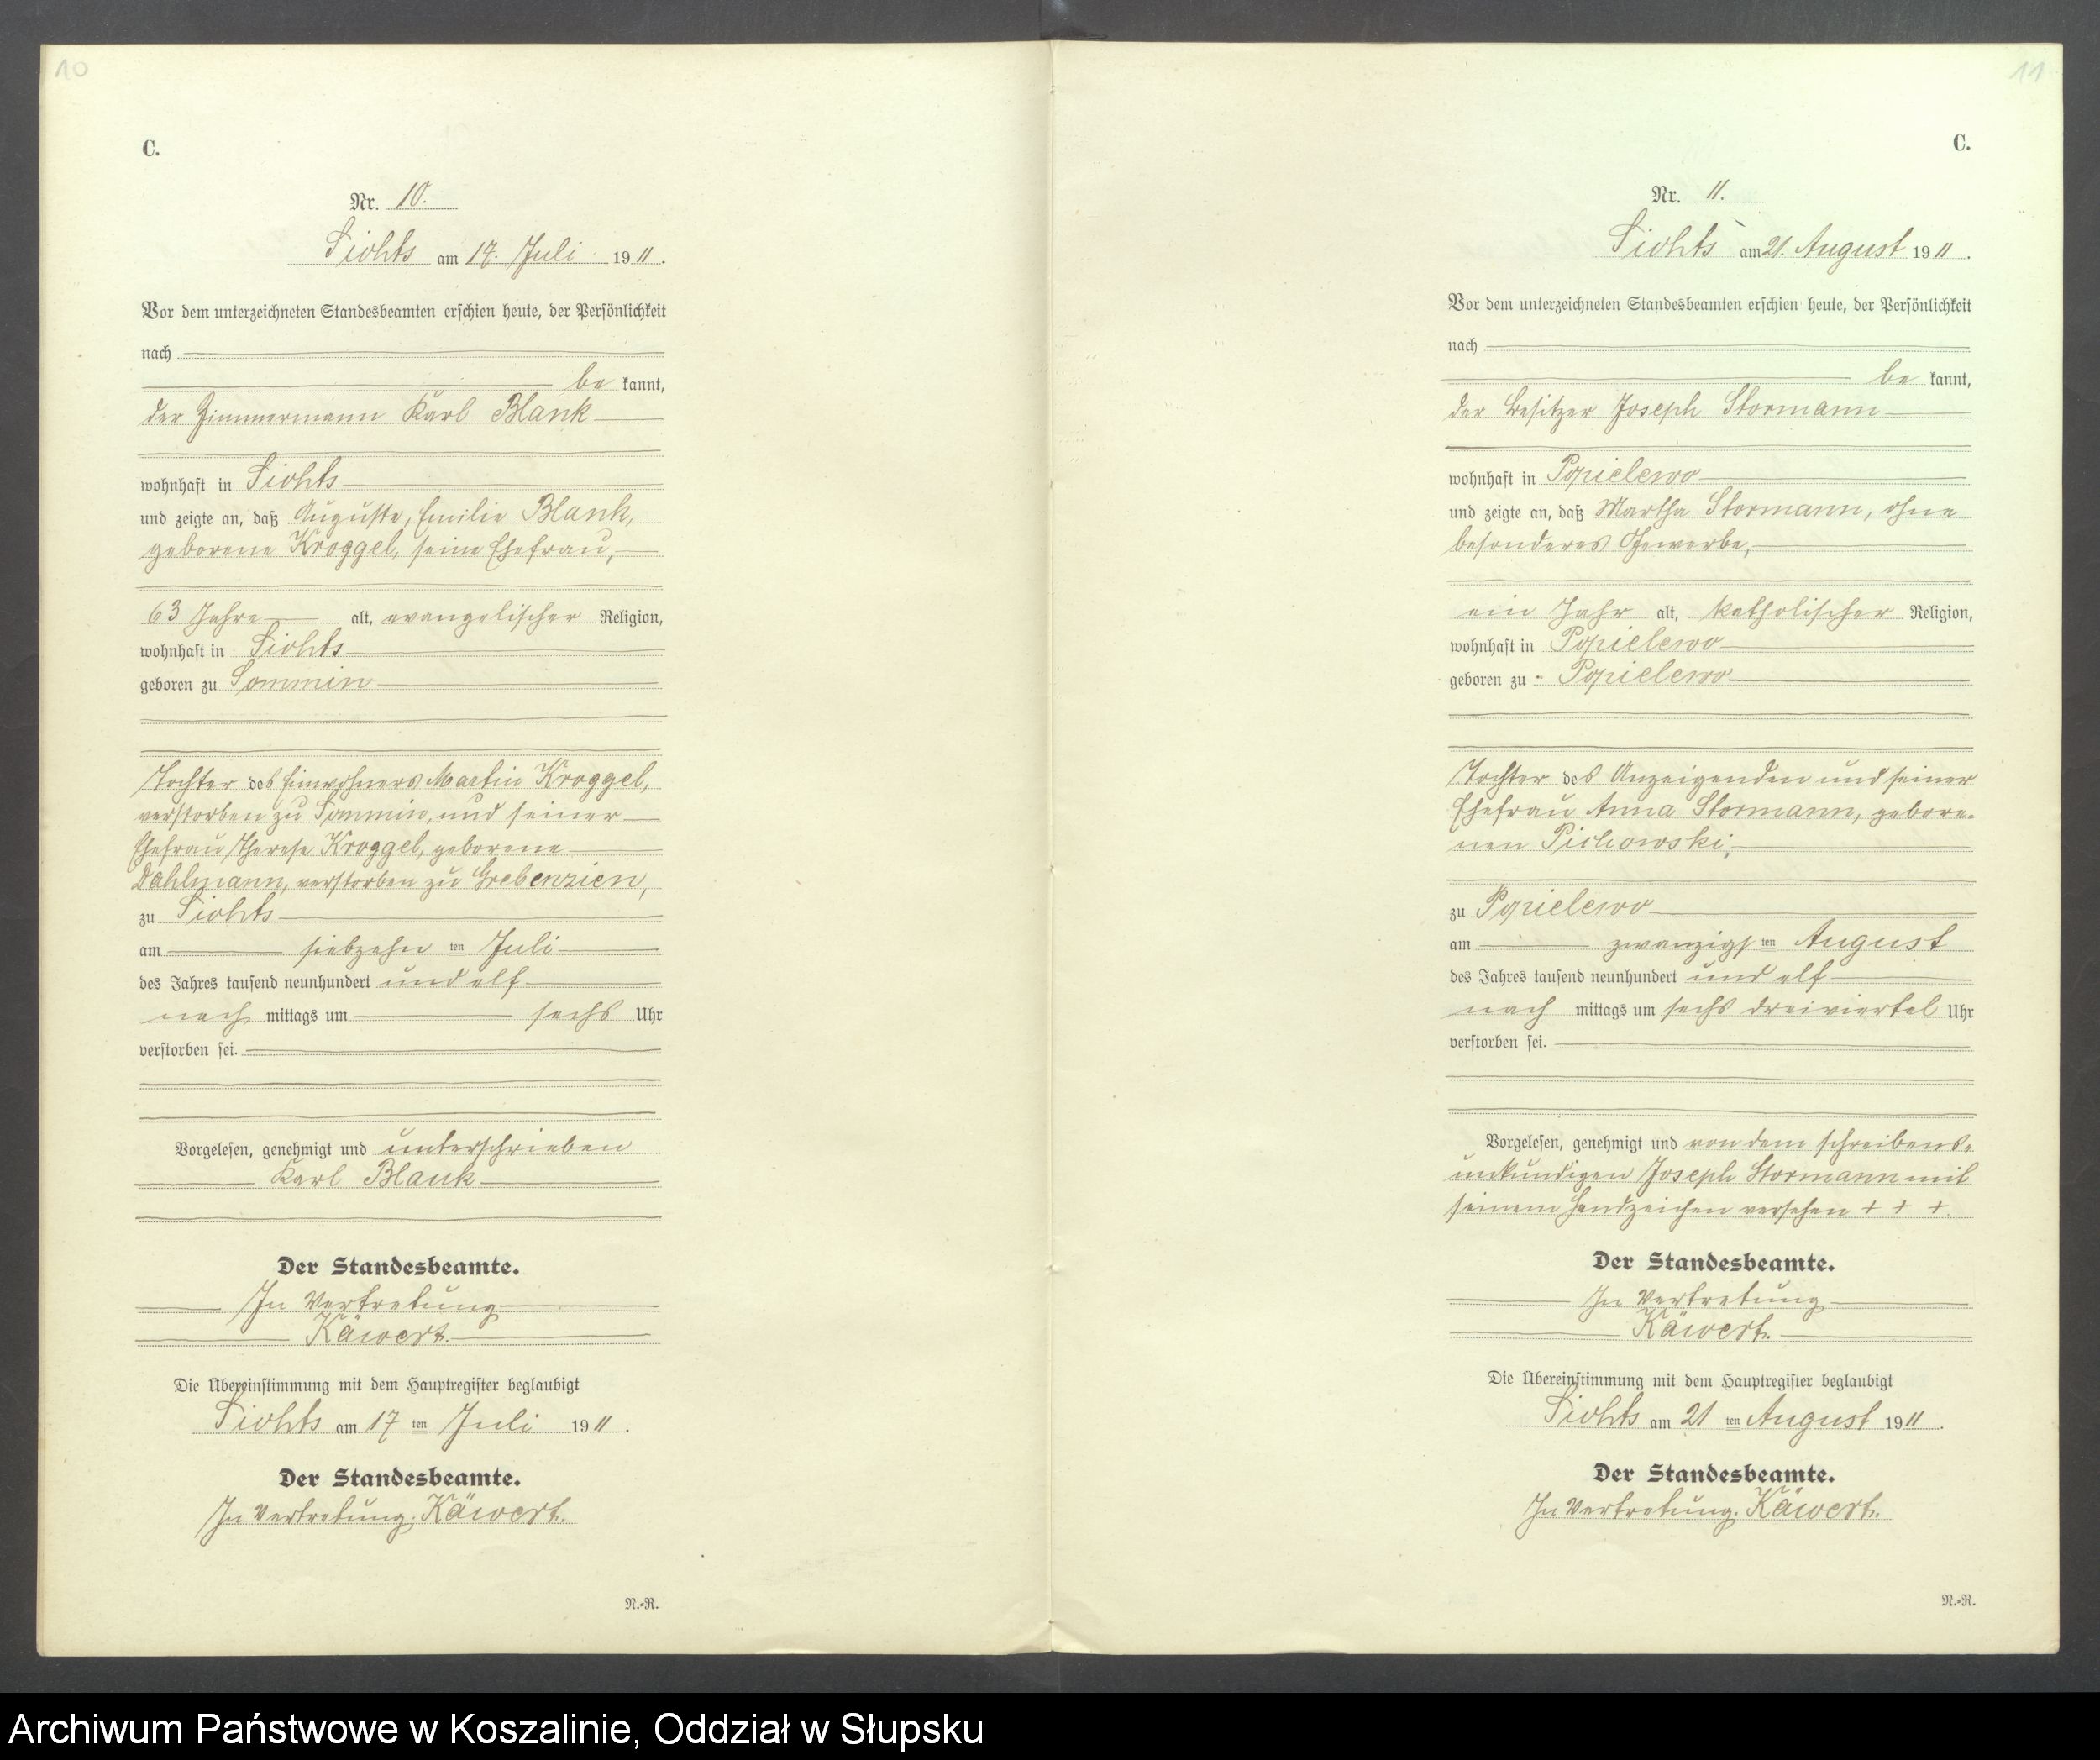 10
C.
Nr. 10.
Siohts am 17. Juli 1911.
Vor dem unterzeichneten Standesbeamten erschien heute, der Persönlichkeit
nach
be kannt,
der Zimmermann Karl Blank
wohnhaft in Siohts
und zeigte an, daß Auguste, Emilie Blank,
geborene Kroggel, seine Ehefrau,
63 Jahre alt, evangelischer Religion,
wohnhaft in Siohts
geboren zu Sommin
Tochter des Einwohners Martin Kroggel,
verstorben zu Sommin, und seiner
Ehefrau Therese Kroggel, geborene
Dahlmann, verstorben zu Grebenzien,
zu Siohts
am siebzehn ten Juli
des Jahres tausend neunhundert und elf
nach mittags um sechs Uhr
verstorben sei.
Vorgelesen, genehmigt und unterschrieben
Karl Blank
Der Standesbeamte.
In Vertretung
Käwert.
Die Übereinstimmung mit dem Hauptregister beglaubigt
Siohts am 17 ten Juli 1911.
Der Standesbeamte.
In Vertretung. Käwert.
N.=R.
11
C.
Nr. 11.
Siohts am 21. August 1911.
Vor dem unterzeichneten Standesbeamten erschien heute, der Persönlichkeit
nach
be kannt,
der Besitzer Joseph Stormann
wohnhaft in Popielewo
und zeigte an, daß Martha Stormann, ohne
besonderes Gewerbe,
ein Jahr alt, katholischer Religion,
wohnhaft in Popielewo
geboren zu Popielewo
Tochter des Anzeigenden und seiner
Ehefrau Anna Stormann, gebore=
nen Pichowski,
zu Popielewo
am zwanzigs ten August
des Jahres tausend neunhundert und elf
nach mittags um sechs dreiviertel Uhr
verstorben sei.
Vorgelesen, genehmigt und von dem schreibens=
unkundigen Joseph Stormann mit
seinem Handzeichen versehen + + +.
Der Standesbeamte.
In Vertretung
Käwert.
Die Übereinstimmung mit dem Hauptregister beglaubigt
Siohts am 21 ten August 1911.
Der Standesbeamte.
In Vertretung. Käwert.
N.=R.
Archiwum Państwowe w Koszalinie, Oddział w Słupsku